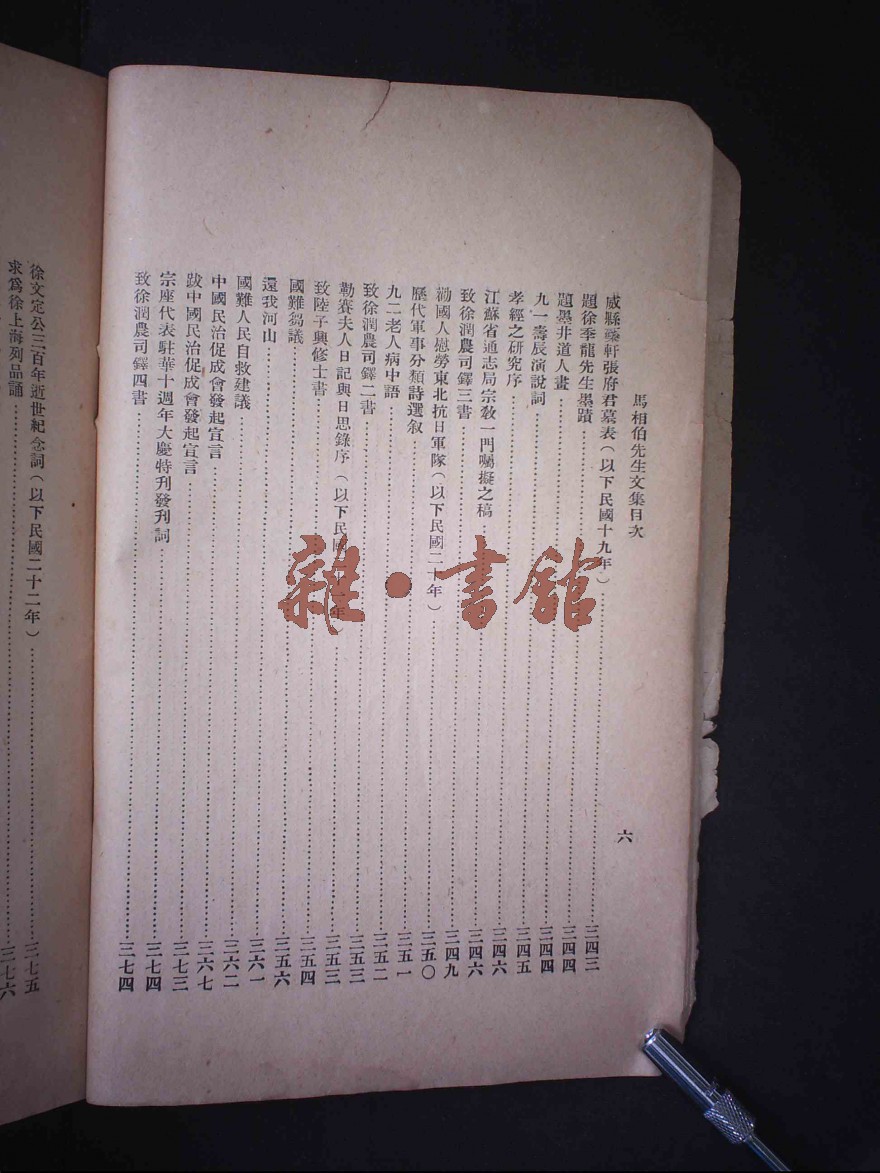 馬相伯先生文集目次
六
威縣𦽦軒張府君墓表(以下民國十九年)……三四三
題徐季龍先生墨蹟……三四四
題墨井道人畫……三四四
九一壽辰演說詞……三四五
孝經之研究序……三四六
江蘇省通志局宗敎一門囑擬之稿……三四六
致徐潤農司鐸三書……三四九
勸國人慰勞東北抗日軍隊(以下民國二十年)……三五〇
歷代軍事分類詩選叙……三五一
九二老人病中語……三五二
致徐潤農司鐸二書……三五三
勒賽夫人日記與日思錄序(以下民國二十一年)……三五三
致陸子興修士書……三五四
國難芻議……三五六
還我河山……三六一
國難人民自救建議……三六二
中國民治促成會發起宣言……三六七
跋中國民治促成會發起宣言……三七三
宗座代表駐華十週年大慶特刊發刊詞……三七四
致徐潤農司鐸四書……三七四
徐文定公三百年逝世紀念詞(以下民國二十二年)……三七五
求爲徐上海列品誦……三七六
雜·書館